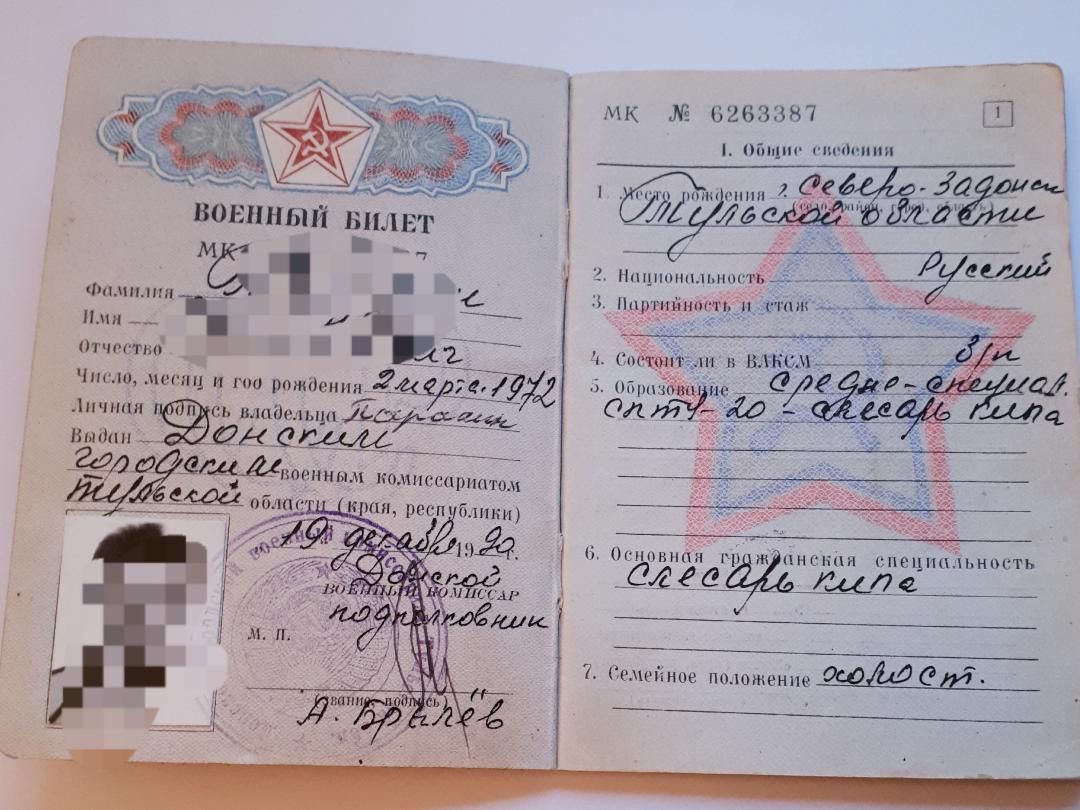 ВОЕННЫЙ БИЛЕТ
МК
Фамилия
Имя
Отчество
Число, месяц и год рождения 2 марта 1972
Личная подпись владельца
Выдан Донским
городским военным комиссариатом
Тульской области (края, республики)
19 декабря 1990 г.
Донской
ВОЕННЫЙ КОМИССАР
подполковник
М. П.
(звание, подпись)
А. Брылёв
МК № 6263387
1
I. Общие сведения
1. Место рождения г. Северо-Задонск
(село, район, город, область)
Тульской области
2. Национальность Русский
3. Партийность и стаж
4. Состоит ли в ВЛКСМ
5. Образование средне-специал.
СПТУ-20 - слесарь кипа
6. Основная гражданская специальность
слесарь кипа
7. Семейное положение холост.